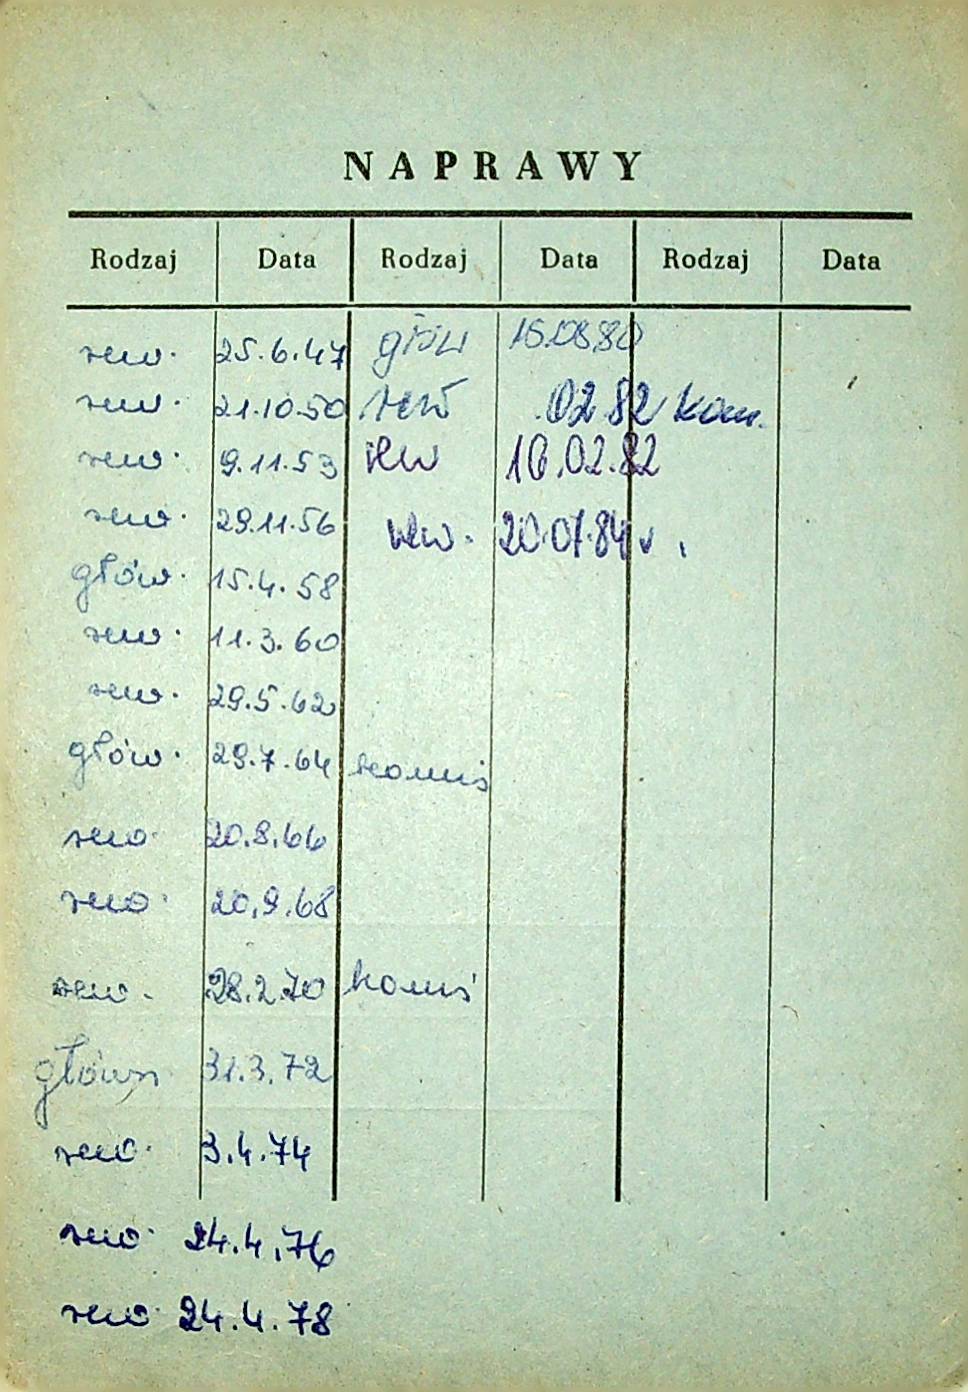 NAPRAWY
Rodzaj Data Rodzaj Data Rodzaj Data
rew. 25.6.47 główn 15.08.80
rew. 21.10.50 rew .02.82 kom.
rew. 9.11.53 rew 16.02.82
rew. 29.11.56 rew. 20.07.84 r.
głów. 15.4.58
rew. 11.3.60
rew. 29.5.62
głów. 29.7.64 komis
rew. 20.8.66
rew. 20.9.68
rew. 28.2.70 komis
główn 31.3.72
rew. 3.4.74
rew. 24.4.76
rew. 24.4.78